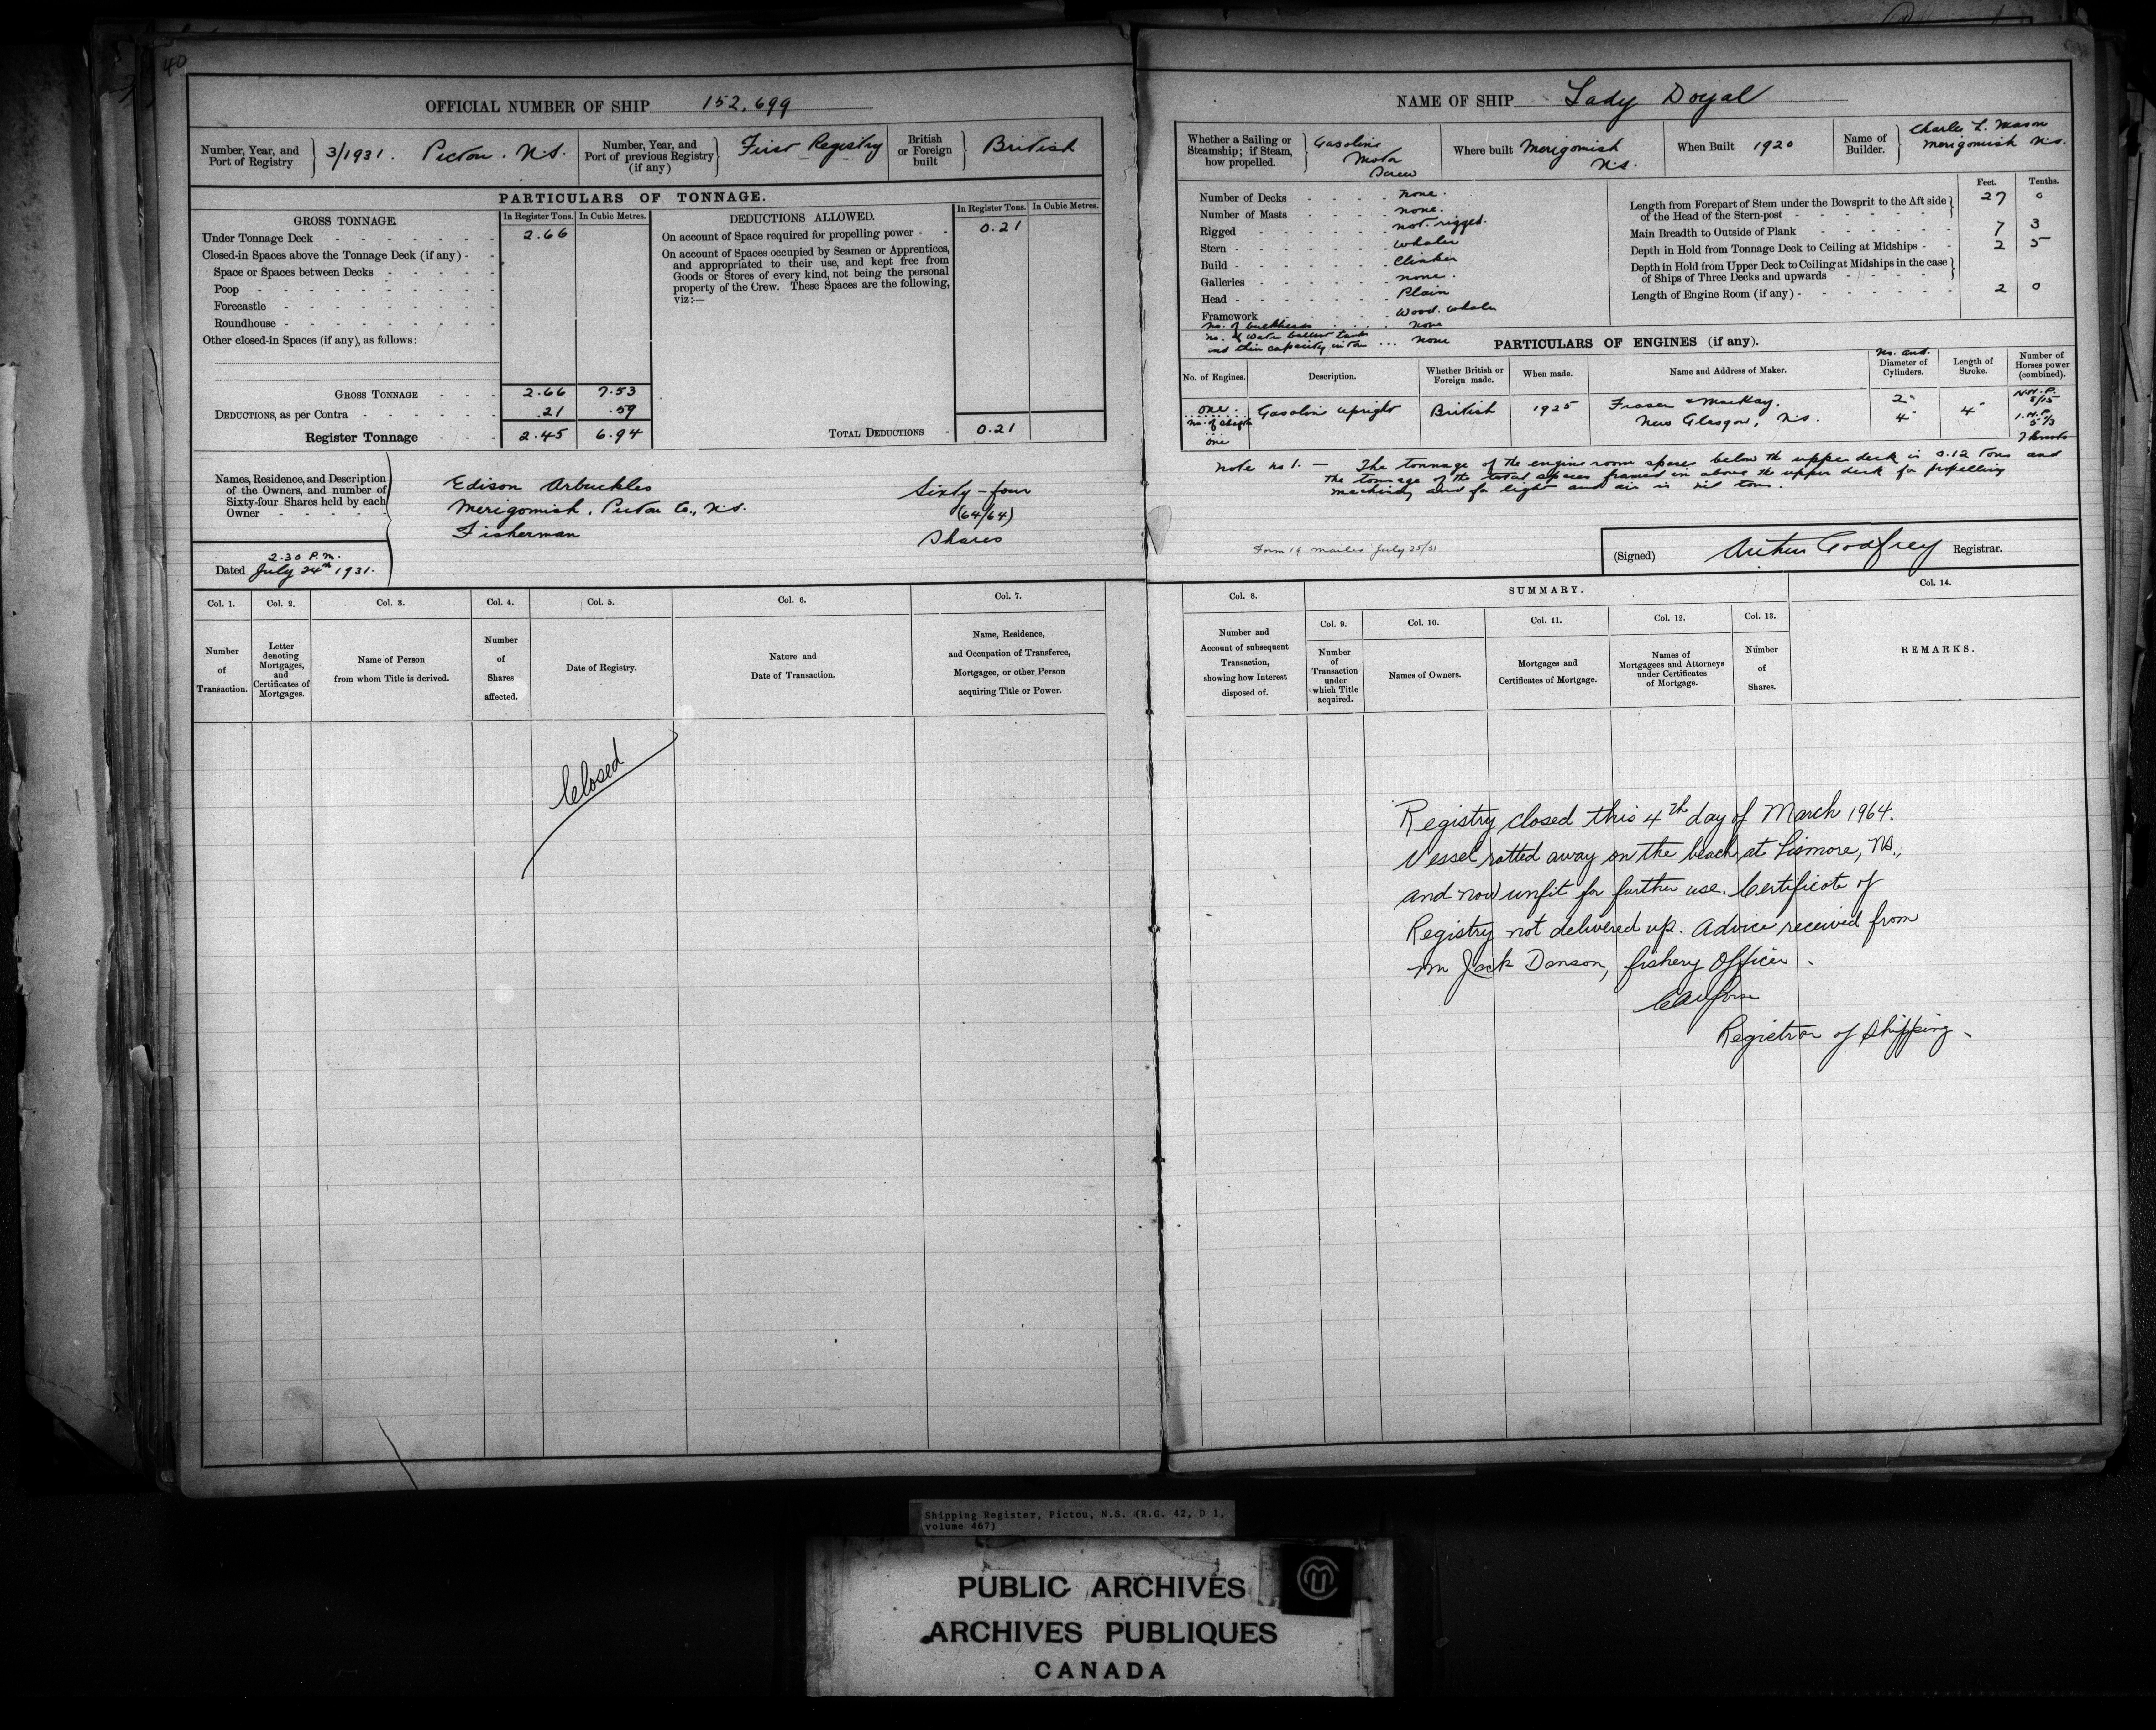 40
OFFICIAL NUMBER OF SHIP 152,699
Number, Year, and Port of Registry } 3/1931. Pictou. N.S.
Number, Year, and Port of previous Registry (if any) } First Registry
British or Foreign built } British
PARTICULARS OF TONNAGE.
GROSS TONNAGE. In Register Tons. In Cubic Metres.
Under Tonnage Deck - - - - - - - 2.66
Closed-in Spaces above the Tonnage Deck (if any) -
Space or Spaces between Decks - - - - - -
Poop - - - - - - - - - -
Forecastle - - - - - - - - -
Roundhouse - - - - - - - - -
Other closed-in Spaces (if any), as follows:
GROSS TONNAGE - - - 2.66 7.53
DEDUCTIONS, as per Contra - - - - - - .21 .59
Register Tonnage - - - 2.45 6.94
DEDUCTIONS ALLOWED. In Register Tons. In Cubic Metres.
On account of Space required for propelling power - - 0.21
On account of Spaces occupied by Seamen or Apprentices,
and appropriated to their use, and kept free from
Goods or Stores of every kind, not being the personal
property of the Crew. These Spaces are the following,
viz:—
TOTAL DEDUCTIONS - 0.21
Names, Residence, and Description
of the Owners, and number of
Sixty-four Shares held by each
Owner - - - - -
Edison Arbuckles
Merigomish, Pictou Co., N.S.
Fisherman
Sixty-four
(64/64)
Shares
2.30 P.M.
Dated July 24th 1931.
Col. 1. Col. 2. Col. 3. Col. 4. Col. 5. Col. 6. Col. 7.
Number of Transaction.
Letter denoting Mortgages, and Certificates of Mortgages.
Name of Person from whom Title is derived.
Number of Shares affected.
Date of Registry.
Nature and Date of Transaction.
Name, Residence, and Occupation of Transferee, Mortgagee, or other Person acquiring Title or Power.
Closed
NAME OF SHIP Lady Doyal
Whether a Sailing or Steamship; if Steam, how propelled. } Gasoline Motor Screw
Where built Merigomish N.S.
When Built 1920
Name of Builder. } Charles L. Mason Merigomish N.S.
Number of Decks - - - - none.
Number of Masts - - - - none.
Rigged - - - - - - not rigged.
Stern - - - - - - - whaler
Build - - - - - - - Clinker
Galleries - - - - - - none.
Head - - - - - - - Plain
Framework - - - - - Wood. whaler
No. of bulkheads . . . . none
No. of water ballast tanks
and their capacity in tons ... none
Feet. Tenths.
Length from Forepart of Stem under the Bowsprit to the Aft side
of the Head of the Stern-post - - - - - } 27 0
Main Breadth to Outside of Plank - - - - - 7 3
Depth in Hold from Tonnage Deck to Ceiling at Midships - - 2 5
Depth in Hold from Upper Deck to Ceiling at Midships in the case
of Ships of Three Decks and upwards - - - - }
Length of Engine Room (if any) - - - - - - 2 0
PARTICULARS OF ENGINES (if any).
No. of Engines.
Description.
Whether British or Foreign made.
When made.
Name and Address of Maker.
No. and Diameter of Cylinders.
Length of Stroke.
Number of Horses power (combined).
one.
Gasoline upright
British
1925
Fraser & MacKay.
New Glasgow, N.S.
2"
4"
4"
N.H.P.
I.H.P.
No. of shafts
one
7 knots
Note no 1. — The tonnage of the engine room spaces below the upper deck is 0.12 tons and
the tonnage of the total spaces framed in above the upper deck for propelling
machinery and for light and air is nil tons.
Form 19 mailed July 25/31
(Signed) Arthur Godfrey Registrar.
Col. 8. SUMMARY. Col. 14.
Col. 9. Col. 10. Col. 11. Col. 12. Col. 13.
Number and Account of subsequent Transaction, showing how Interest disposed of.
Number of Transaction under which Title acquired.
Names of Owners.
Mortgages and Certificates of Mortgage.
Names of Mortgagees and Attorneys under Certificates of Mortgage.
Number of Shares.
REMARKS.
Registry closed this 4th day of March 1964.
Vessel rotted away on the beach at Lismore, NS.,
and now unfit for further use. Certificate of
Registry not delivered up. Advice received from
Mr Jack Danson, fishery Officer.
Registrar of Shipping.
Shipping Register, Pictou, N.S. (R.G. 42, D 1,
volume 467)
PUBLIC ARCHIVES
ARCHIVES PUBLIQUES
CANADA